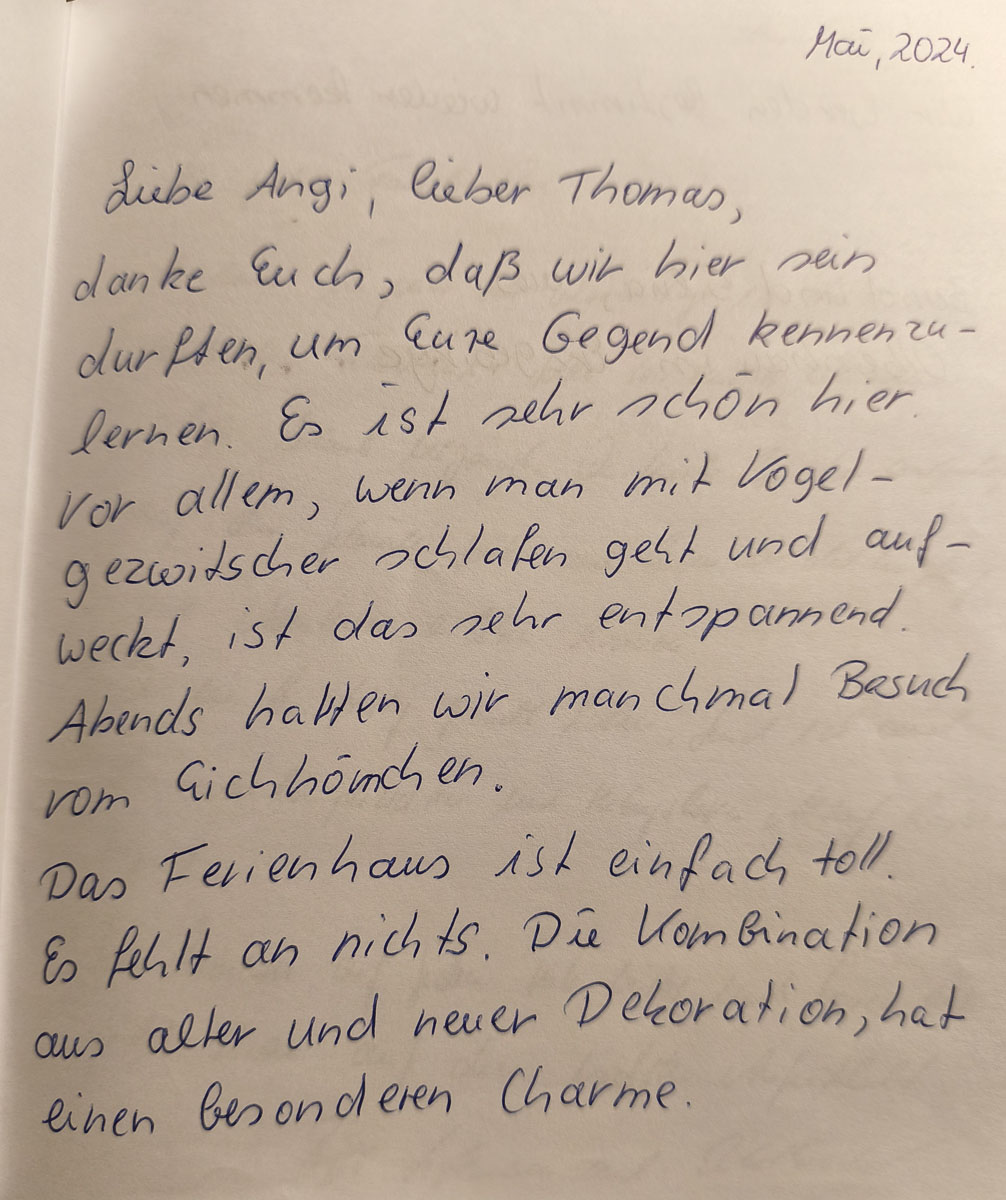 Mai, 2024.
Liebe Angi, lieber Thomas,
danke Euch, daß wir hier sein
durften, um Eure Gegend kennenzu-
lernen. Es ist sehr schön hier.
Vor allem, wenn man mit Vogel-
gezwitscher schlafen geht und auf-
weckt, ist das sehr entspannend.
Abends hatten wir manchmal Besuch
vom Eichhörnchen.
Das Ferienhaus ist einfach toll.
Es fehlt an nichts. Die Kombination
aus alter und neuer Dekoration, hat
einen besonderen Charme.